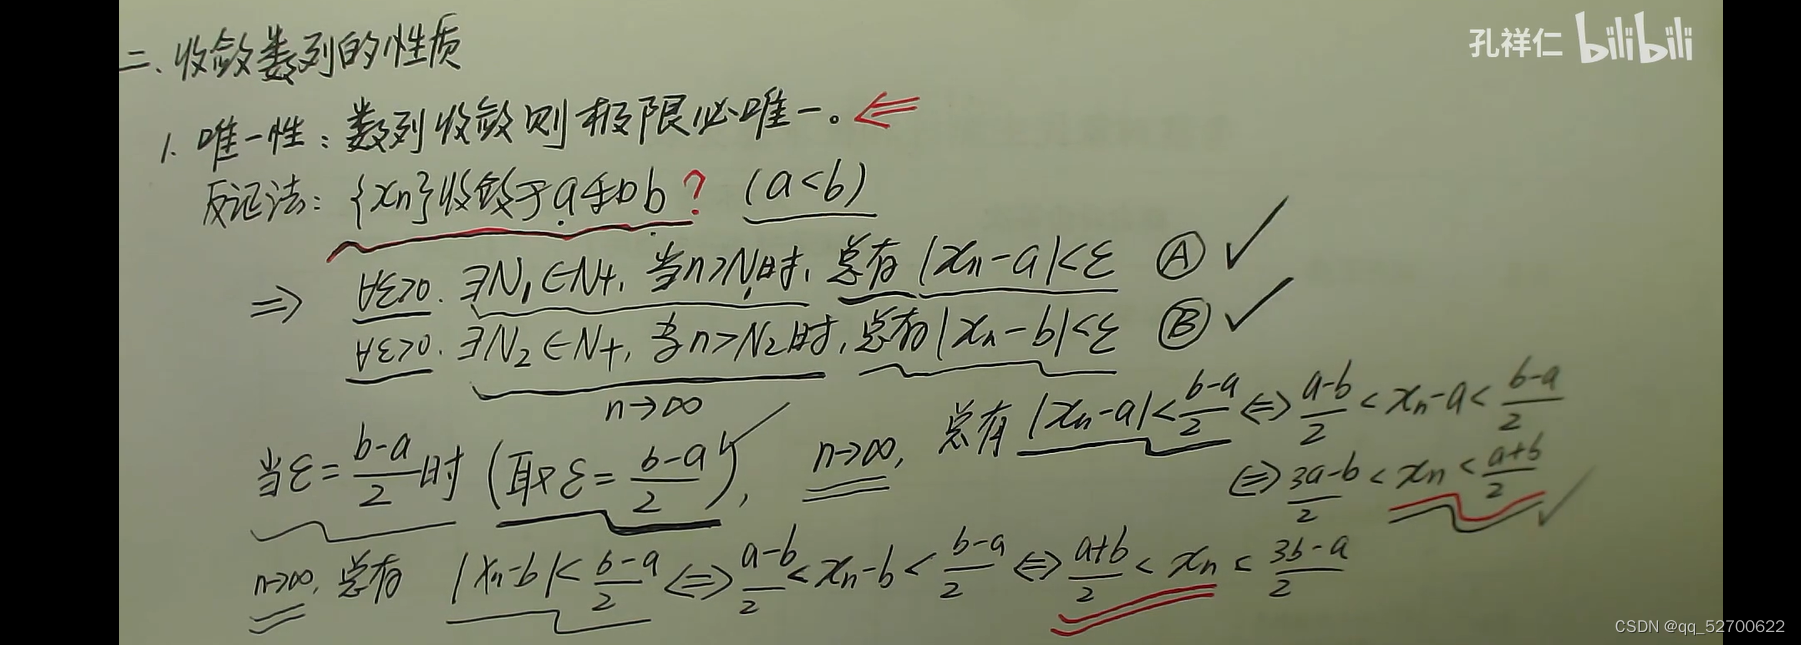 孔祥仁 bilibili
二、收敛数列的性质
1. 唯一性：数列收敛则极限必唯一。
反证法：{xn}收敛于a和b ? (a<b)
⇒ ∀ε>0. ∃N₁∈N+, 当n>N₁时, 总有 |xn-a|<ε Ⓐ ✓
∀ε>0. ∃N₂∈N+, 当n>N₂时, 总有|xn-b|<ε Ⓑ ✓
n→∞
当ε=(b-a)/2时 (取ε=(b-a)/2), n→∞, 总有 |xn-a|<(b-a)/2 ⇔ (a-b)/2 < xn-a < (b-a)/2
⇔ (3a-b)/2 < xn < (a+b)/2 ✓
n→∞, 总有 |xn-b|<(b-a)/2 ⇔ (a-b)/2 < xn-b < (b-a)/2 ⇔ (a+b)/2 < xn < (3b-a)/2
CSDN @qq_52700622